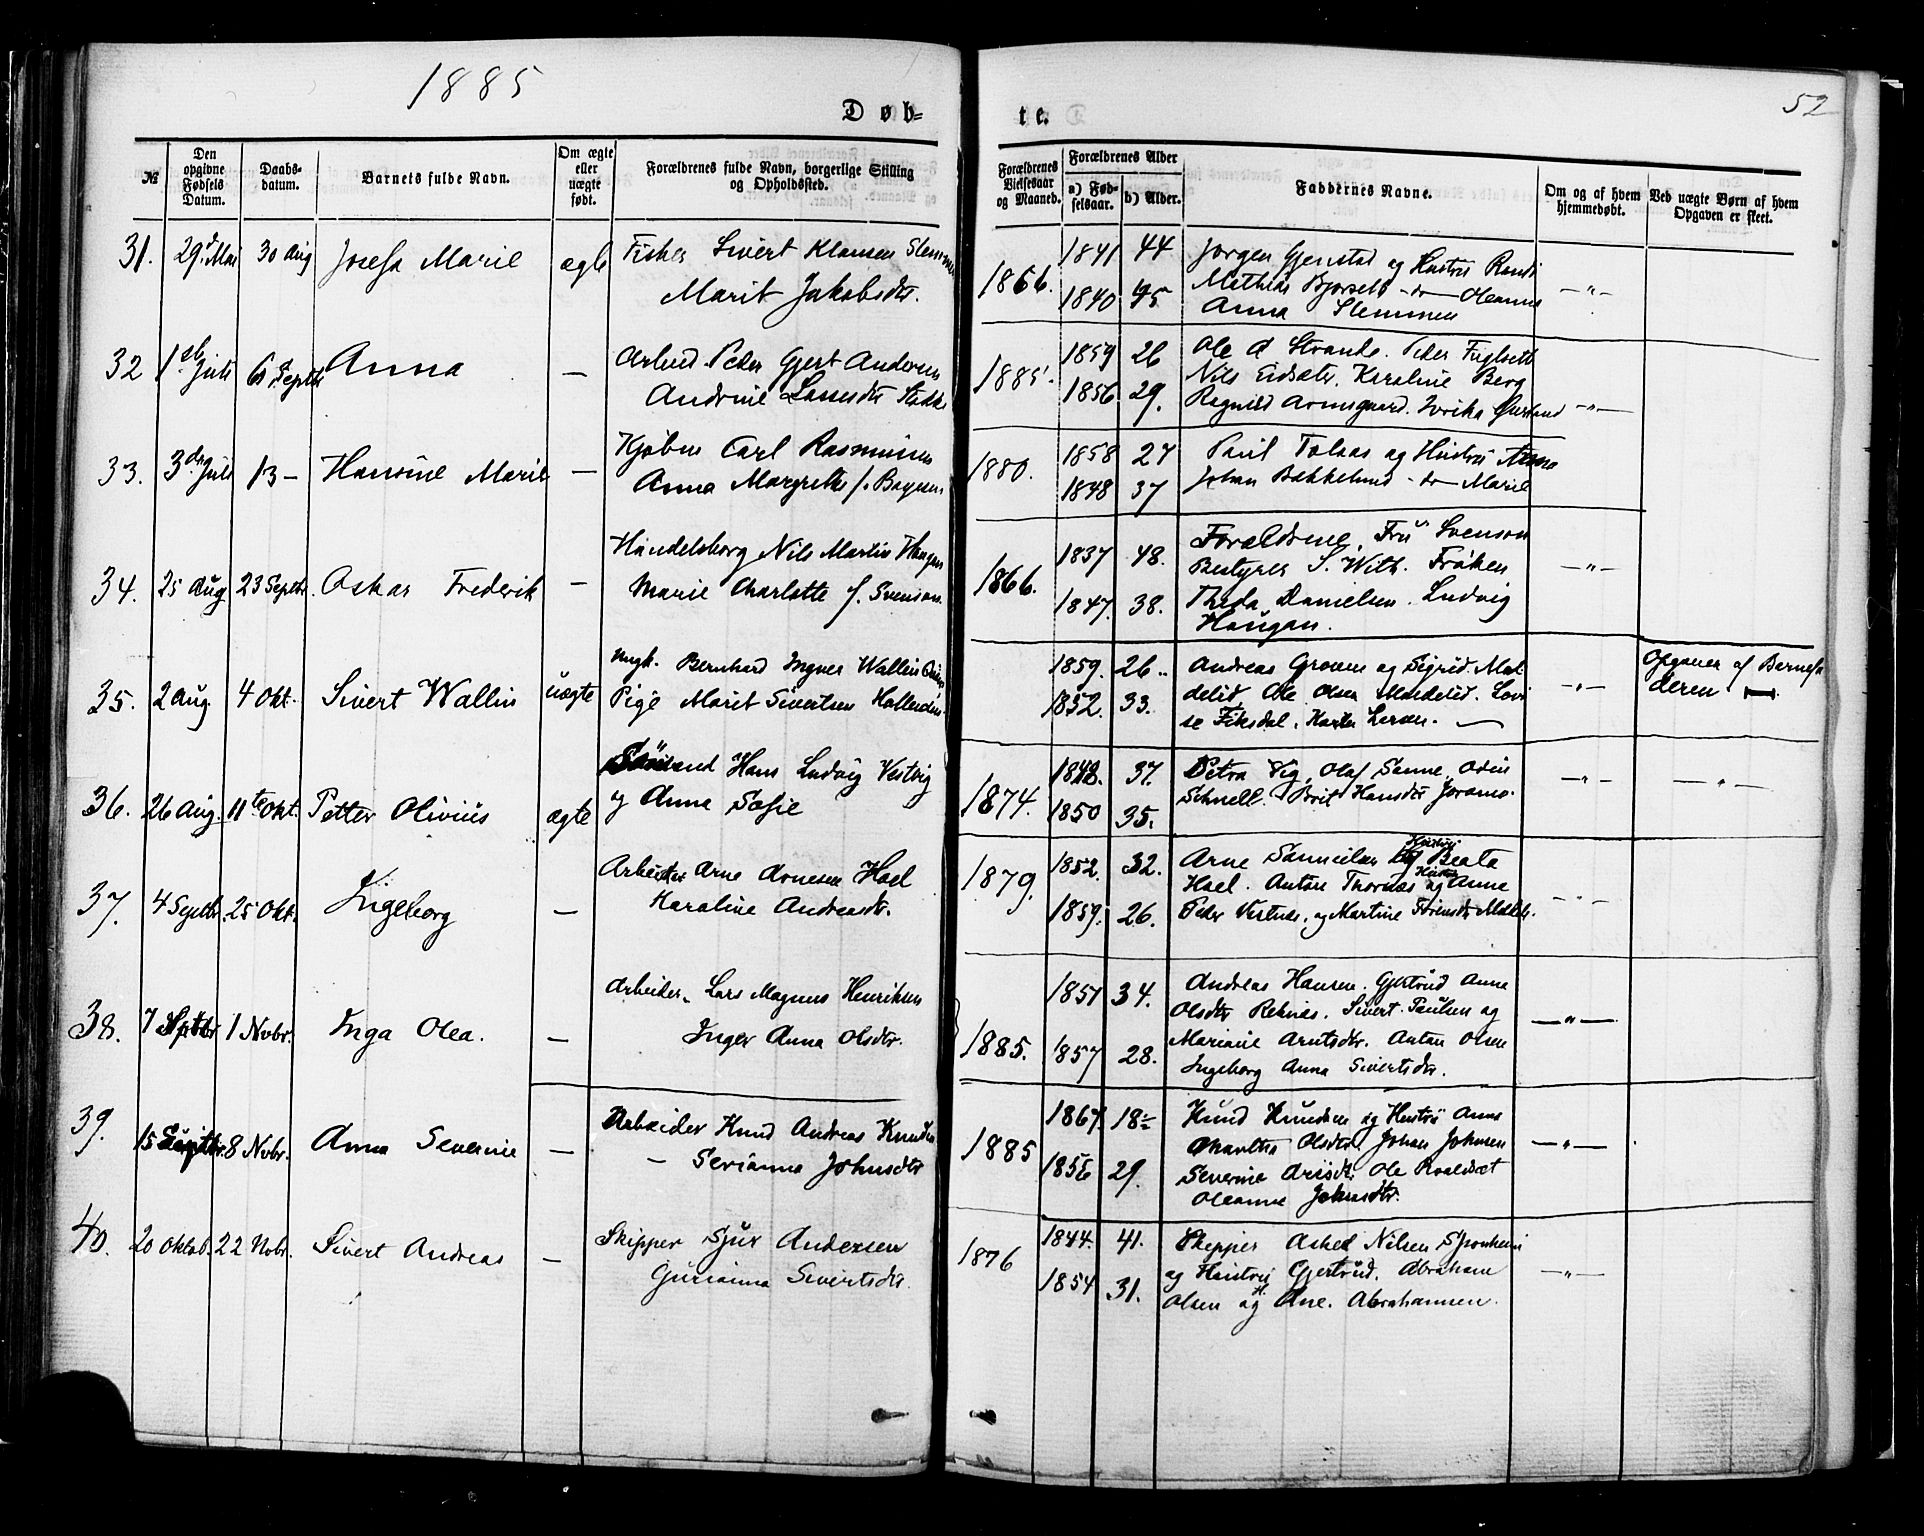 1885
52
Døb=
te.
№
Den opgivne Fødsels Datum.
Daabs-datum.
Barnets fulde Navn.
Om ægte eller uægte født.
Forældrenes fulde Navn, borgerlige Stilling og Opholdssted.
Forældrenes Vielsesaar og Maaned.
Forældrenes Alder
a) Fødselsaar.
b) Alder.
Faddernes Navne.
Om og af hvem hjemmedøbt.
Ved uægte Børn af hvem Opgaven er skeet.
31. 29. Mai 30 Aug Josefa Marie ægte Fisker Sivert Klausen
Marit Jakobsdtr.
1866. 1841 44 Jørgen Gjenstad og Hustru Randi
1840 45 Mathias Bjørseth -do- Oleanna
Anna Slemmen
-"-
32 1st Juli 6 Septb Anna — Arbeid. Peder Gjert Andersen
Andrine Lassesdtr
1885. 1859 26 Ole A Strande. Peder Fuglseth
1856 29. Nils Eidsæter. Karoline Berg
Ragnild -"-
33. 3die Juli 13 - Hansine Marie — Kjøbm Carl Rasmussen
Anna Margrethe f.
1880. 1858 27 Paul Tolaas og Hustru Anna
1848 37 Johan Bakkelund -do- Marie
34. 25 Aug 23 Septbr. Oskar Frederik — Handelsborg Nils Martin Haugan
Marie Charlotte f. Svenson
1866. 1837 48. Forældrene, Fru Svenson
Bestyrer S. With. Frøken
1847. 38. Theda Danielsen. Ludvig
Haugan.
-"-
35. 2 Aug. 4 Okt. Sivert Wallin uægte Ungk. Bernhard Ingver Wallin
Pige Marit Sivertsen
1859. 26 Andreas Groven og Sigrid Mol
1852. 33. delid Ole Olsen Moldelid. Lovi
se Fiksdal. Larsen.
-"-
Opgaven af Barnefa
deren
36. 26 Aug. 11te Okt. Petter Olivius ægte Hans Ludvig Vestvig
og Anna Sofie
1874. 1848. 37. Petra Vig, Olaf Sanne, Odin
1850 35. Schnell. Brit Hansdtr
-"- -"-
37. 4 Septbr. 25 Okt. Ingeborg — Arbeider Arne Arnesen Hoel
Karoline Andreasdtr.
1879. 1852. 32. Arne Samuelsen og Hustru Beata
Hoel. Anton Thornæs og Hustru Anne
1859. 26. Peder og Martine
-"-
38. 7 Septbr 1 Novbr. Inga Olea. — Arbeider. Lars Magnus Henriksen
Inger Anna Olsdtr.
1885. 1851 34. Andreas Hansen. Gjertrud Anne
Olsdtr Reknæs. Sivert Paulsen og
1857 28. Mariane Arntsdtr. Anton Olsen
Ingeborg Anna Sivertsdtr.
-"-
39. 15 Septbr. 8 Novbr. Anna Severine — Arbeider Knud Andreas Knudsen
- Serianna Johnsdtr
1885 1867. 18 Knud Knudsen og Hustru Anne
Olsdtr. Johan Johnsen
1856 29. Severine Ole Roaldset
Oleanne Johnsdtr.
-"-
40. 20 Oktob. 22 Nobr. Sivert Andreas — Skipper Sjur Andersen
Gurianna Sivertsdtr.
1876 1844. 41. Skipper Askel Nilsen Sponheim
og Hustru Gjertrud. Abraham
1854 31. Olsen og H. Ane. Abrahamsen.
-"-